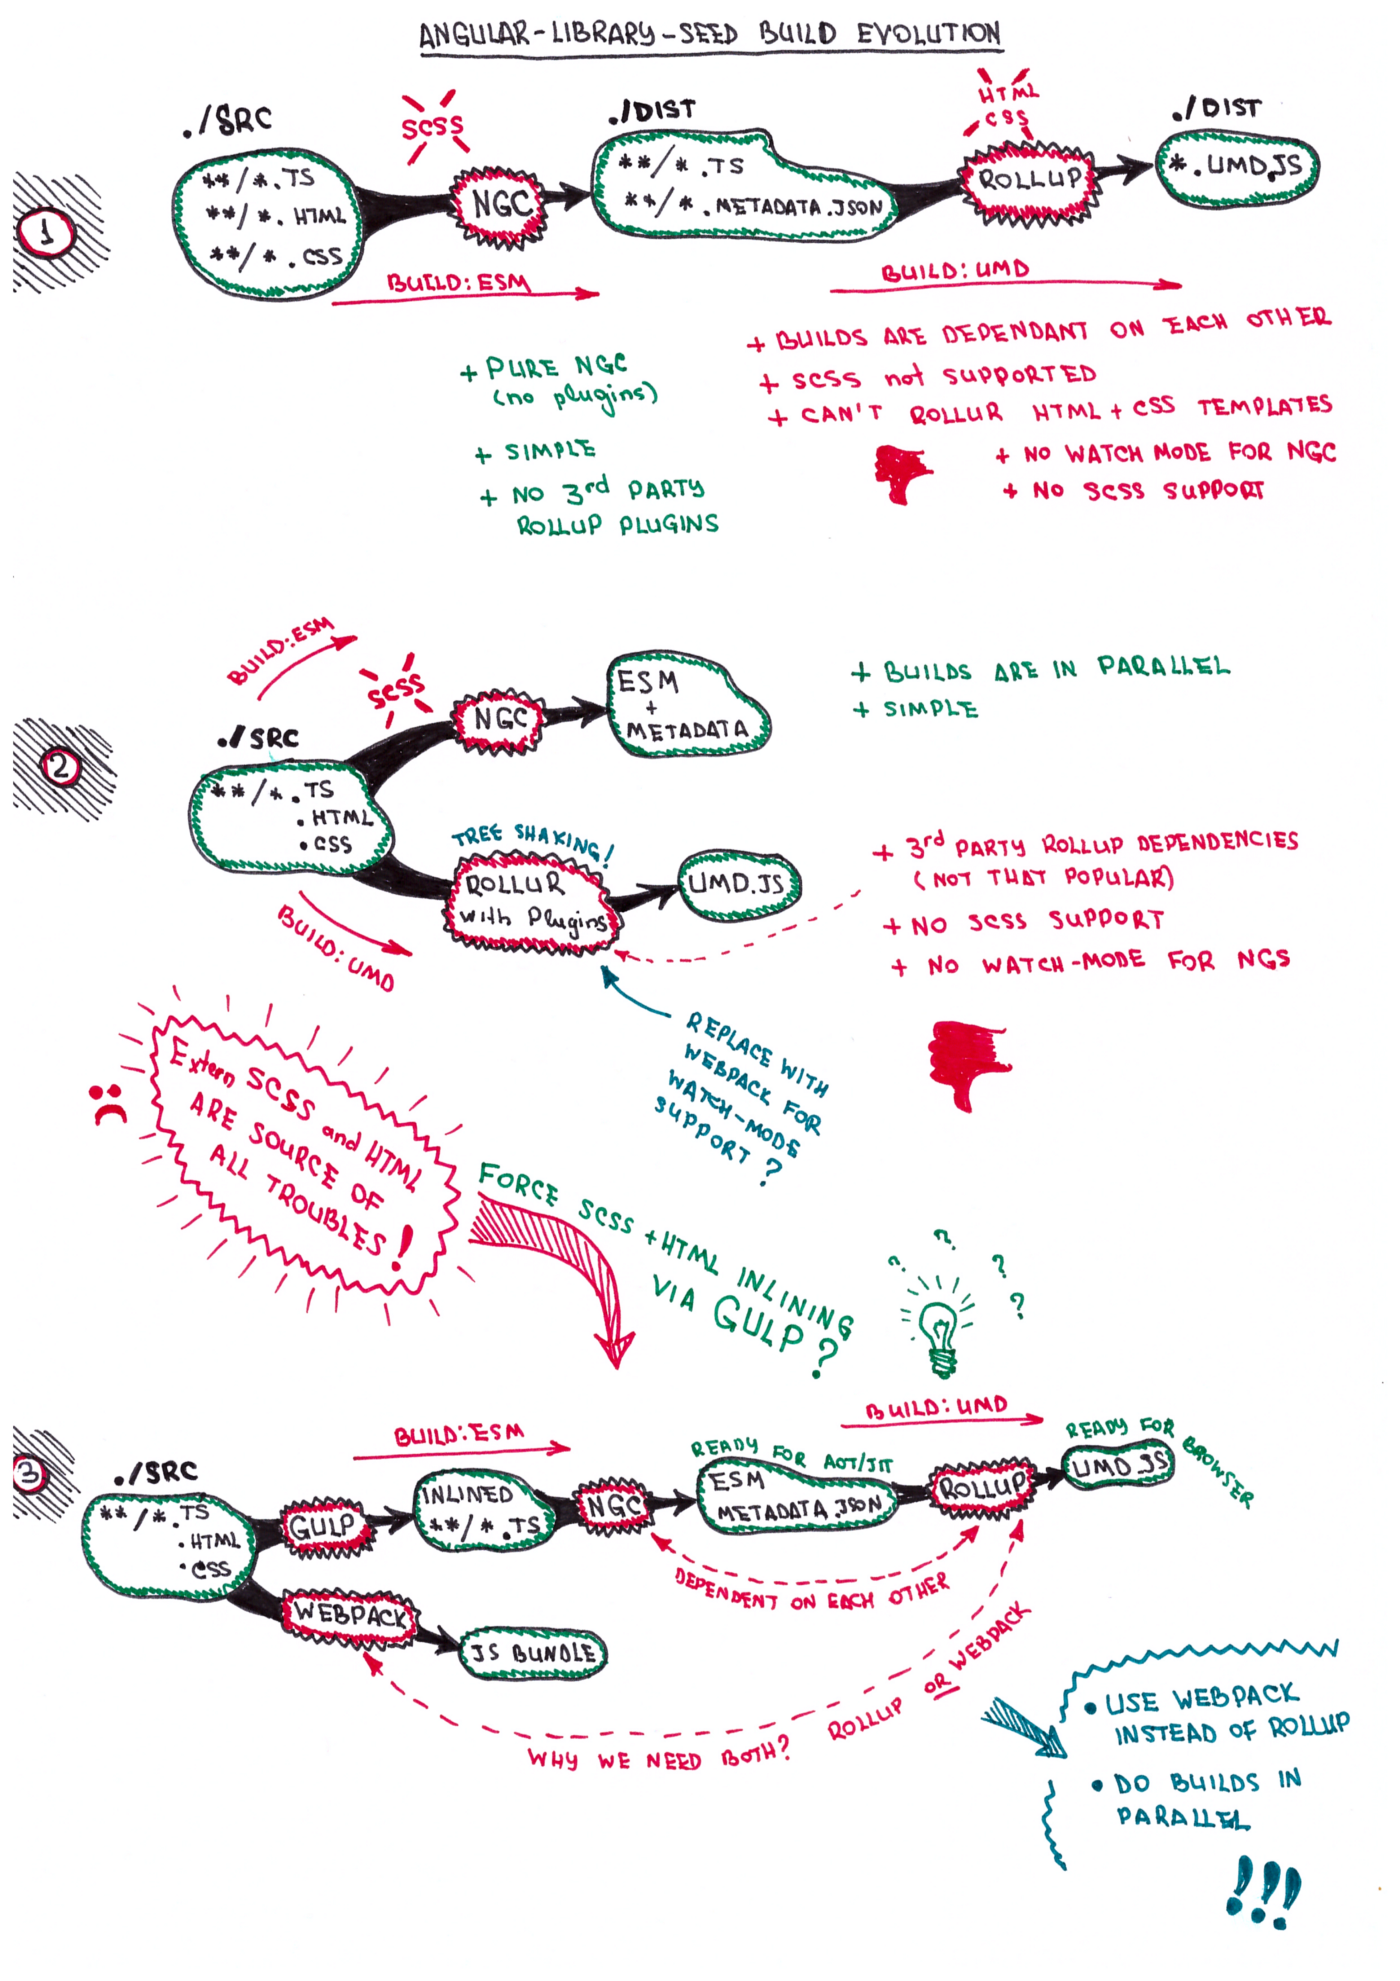 ANGULAR-LIBRARY-SEED BUILD EVOLUTION
1
./SRC
**/*.TS
**/*.HTML
**/*.CSS
SCSS
NGC
./DIST
**/*.TS
**/*.METADATA.JSON
HTML
CSS
ROLLUP
./DIST
*.UMD.JS
BUILD:ESM
BUILD:UMD
+ PURE NGC
(no plugins)
+ SIMPLE
+ NO 3rd PARTY
ROLLUP PLUGINS
+ BUILDS ARE DEPENDANT ON EACH OTHER
+ SCSS not SUPPORTED
+ CAN'T ROLLUR HTML + CSS TEMPLATES
+ NO WATCH MODE FOR NGC
+ NO SCSS SUPPORT
2
BUILD:ESM
./SRC
**/*.TS
.HTML
.CSS
SCSS
NGC
ESM
+
METADATA
TREE SHAKING!
ROLLUR
with Plugins
UMD.JS
BUILD:UMD
+ BUILDS ARE IN PARALLEL
+ SIMPLE
+ 3rd PARTY ROLLUP DEPENDENCIES
(NOT THAT POPULAR)
+ NO SCSS SUPPORT
+ NO WATCH-MODE FOR NGS
REPLACE WITH
WEBPACK FOR
WATCH-MODE
SUPPORT?
Extern SCSS and HTML
ARE SOURCE OF
ALL TROUBLES!
FORCE SCSS + HTML INLINING
VIA GULP?
? ? ? ?
3
BUILD:ESM
BUILD:UMD
./SRC
**/*.TS
.HTML
.CSS
GULP
INLINED
**/*.TS
NGC
READY FOR AOT/JIT
ESM
METADATA.JSON
ROLLUP
READY FOR BROWSER
UMD.JS
DEPENDENT ON EACH OTHER
WEBPACK
JS BUNDLE
WHY WE NEED BOTH? ROLLUP OR WEBPACK
• USE WEBPACK
INSTEAD OF ROLLUP
• DO BUILDS IN
PARALLEL
!!!